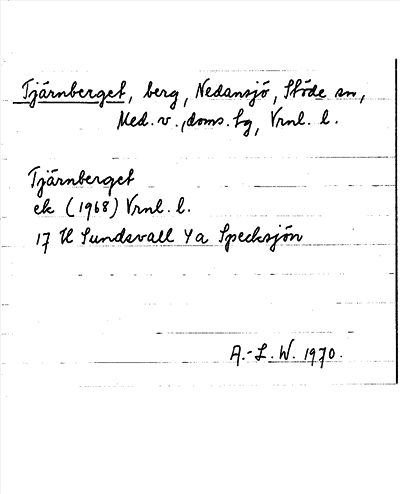 Tjärnberget, berg, Nedansjö, Stöde sn,
Med. v., doms. tg, Vrnl. l.
Tjärnberget
ek (1968) Vrnl. l.
17 H Sundsvall 4 a Specksjön
A.-L. W. 1970.